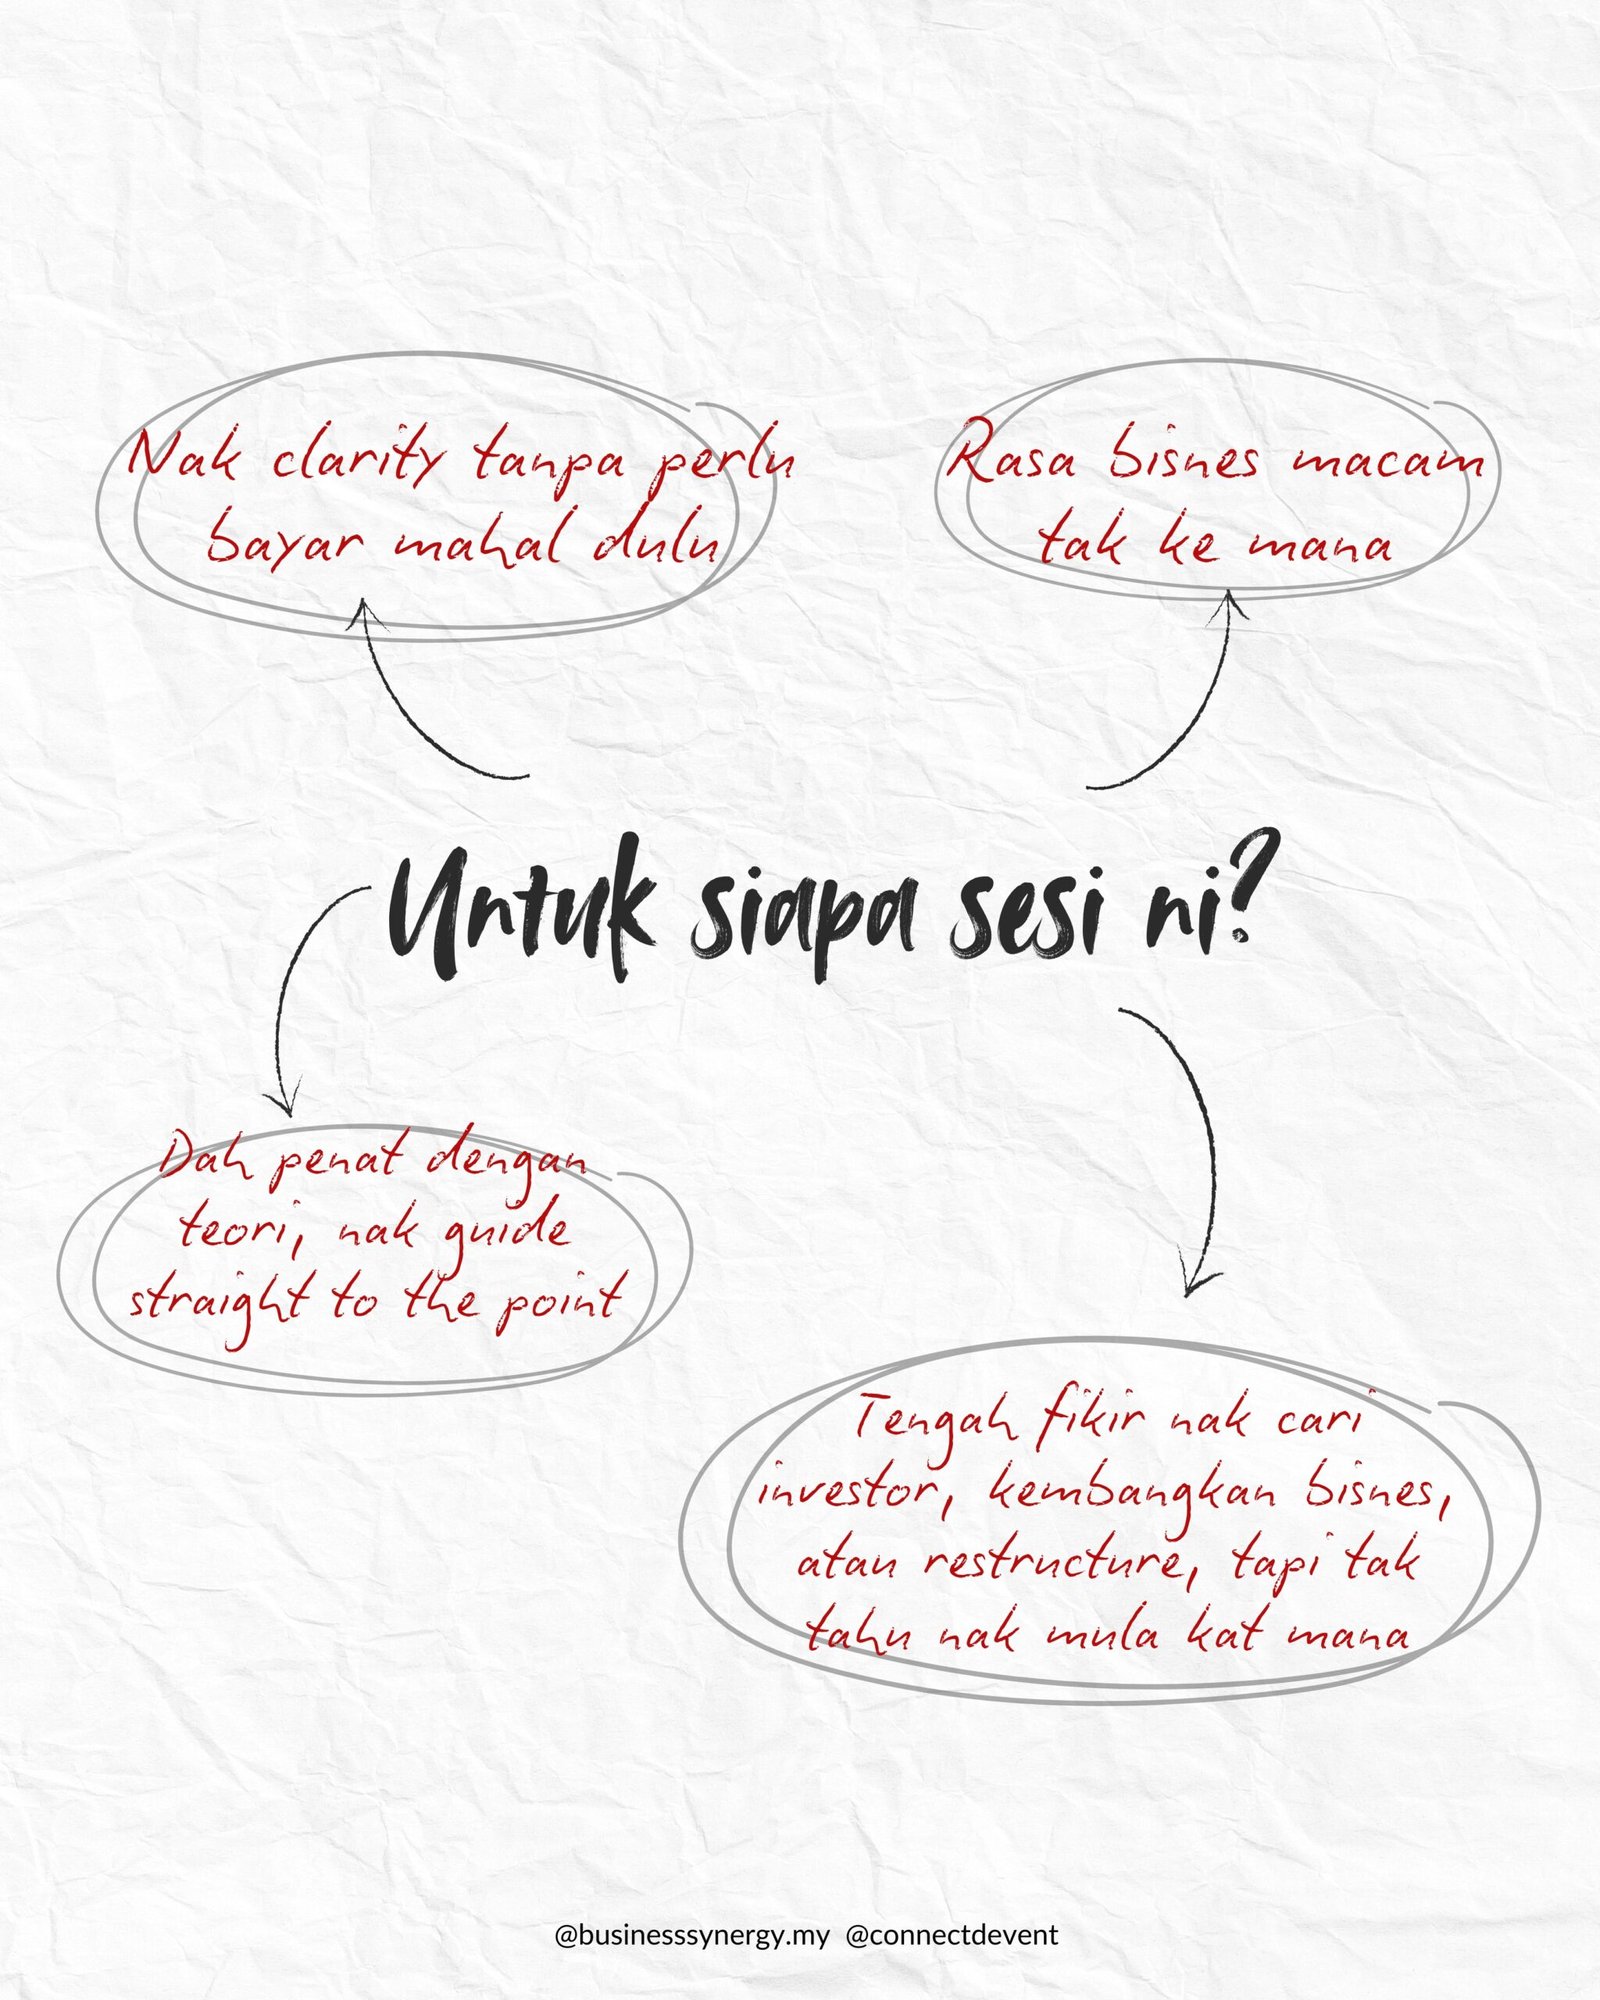 Nak clarity tanpa perlu
bayar mahal dulu
Rasa bisnes macam
tak ke mana
Untuk siapa sesi ni?
Dah penat dengan
teori, nak guide
straight to the point
Tengah fikir nak cari
investor, kembangkan bisnes,
atau restructure, tapi tak
tahu nak mula kat mana
@businesssynergy.my @connectdevent